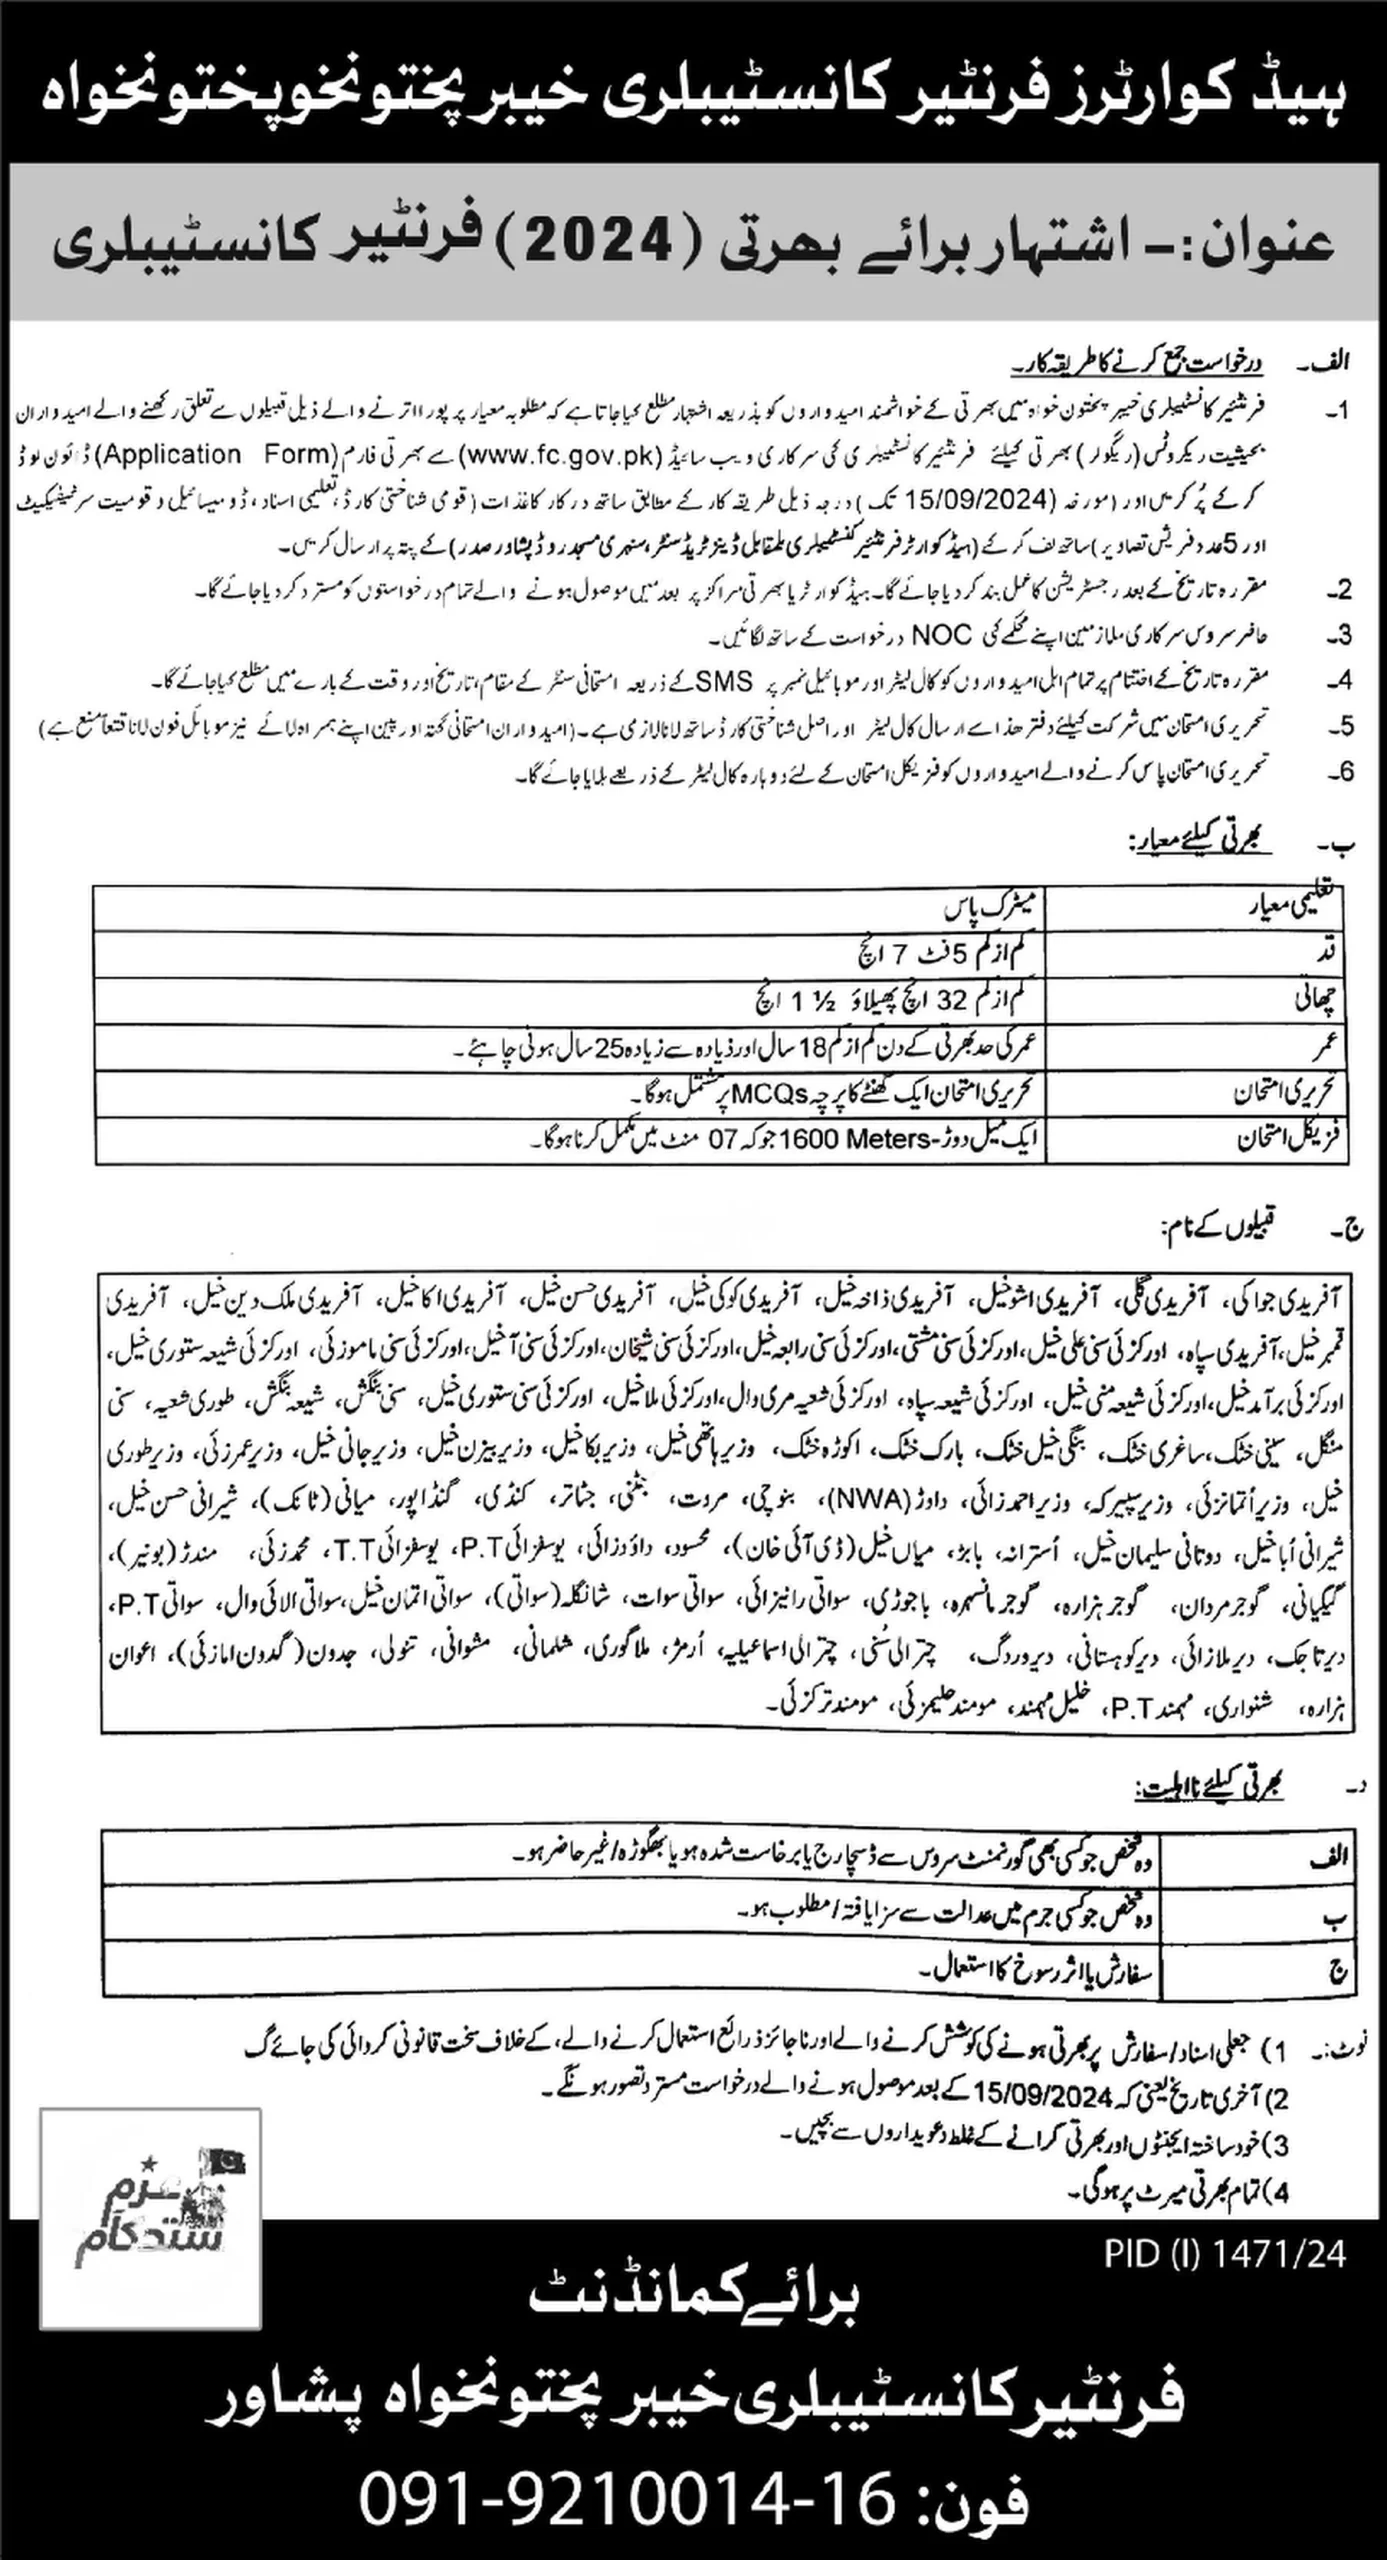 ہیڈ کوارٹرز فرنٹیر کانسٹیبلری خیبر پختونخوپختونخواہ
عنوان:- اشتہار برائے بھرتی (2024) فرنٹیر کانسٹیبلری
الف۔ درخواست جمع کرنے کا طریقہ کار۔
1۔ فرنٹیر کانسٹیبلری خیبر پختون خواہ میں بھرتی کے خواشمند امیدواروں کو بذریعہ اشتہار مطلع کیا جاتا ہے کہ مطلوبہ معیار پر پورا اترنے والے ذیل قبیلوں سے تعلق رکھنے والے امیدواران
بحیثیت ریکروٹس (ریگولر) بھرتی کیلئے فرنٹیر کانسٹیبلری کی سرکاری ویب سائیڈ (www.fc.gov.pk) سے بھرتی فارم (Application Form) ڈائون لوڈ
کر کے پُر کریں اور (مورخہ 15/09/2024 تک) درجہ ذیل طریقہ کار کے مطابق ساتھ درکار کاغذات (قومی شناختی کارڈ، تعلیمی اسناد، ڈومیسائیل و قومیت سرٹیفیکیٹ
اور 5 عدد فریش تصاویر) ساتھ لف کر کے (ہیڈ کوارٹر فرنٹیر کنسٹیبلری بلمقابل ڈینز ٹریڈ سنٹر، سنہری مسجد روڈ پشاور صدر) کے پتہ پر ارسال کریں۔
2۔ مقررہ تاریخ کے بعد رجسٹریشن کا عمل بند کر دیا جائے گا۔ ہیڈ کوارٹر یا بھرتی مراکز پر بعد میں موصول ہونے والے تمام درخواستوں کو مسترد کر دیا جائے گا۔
3۔ حاضر سروس سرکاری ملازمین اپنے محکمے کی NOC درخواست کے ساتھ لگائیں۔
4۔ مقررہ تاریخ کے اختتام پر تمام اہل امیدواروں کو کال لیٹر اور موبائیل نمبر پر SMS کے ذریعہ امتحانی سنٹر کے مقام، تاریخ اور وقت کے بارے میں مطلع کیا جائے گا۔
5۔ تحریری امتحان میں شرکت کیلئے دفتر ھذا سے ارسال کال لیٹر اور اصل شناختی کارڈ ساتھ لانا لازمی ہے۔ (امیدواران امتحانی گتہ اور پین اپنے ہمراہ لائے نیز موبائل فون لانا قتعاً منع ہے)
6۔ تحریری امتحان پاس کرنے والے امیدواروں کو فزیکل امتحان کے لئے دوبارہ کال لیٹر کے ذریعے بلایا جائے گا۔
ب۔ بھرتی کیلئے معیار:
تعلیمی معیار میٹرک پاس
قد کم از کم 5 فٹ 7 انچ
چھاتی کم از کم 32 انچ پھیلاؤ ½ 1 انچ
عمر عمر کی حد بھرتی کے دن کم از کم 18 سال اور زیادہ سے زیادہ 25 سال ہونی چاہئے۔
تحریری امتحان تحریری امتحان ایک گھنٹے کا پرچہ MCQs پر مشتمل ہوگا۔
فزیکل امتحان ایک میل دوڑ-1600 Meters جو کہ 07 منٹ میں مکمل کرنا ہوگا۔
ج۔ قبیلوں کے نام:
آفریدی جواکی، آفریدی گلی، آفریدی اشوخیل، آفریدی ذاخہ خیل، آفریدی کوکی خیل، آفریدی حسن خیل، آفریدی اکاخیل، آفریدی ملک دین خیل، آفریدی
قمبر خیل، آفریدی سپاہ، اورکزئی سنی علی خیل، اورکزئی سنی مشتی، اورکزئی سنی رابعہ خیل، اورکزئی سنی شیخان، اورکزئی سنی آخیل، اورکزئی سنی ماموزئی، اورکزئی شیعہ ستوری خیل،
اورکزئی برآمد خیل، اورکزئی شیعہ منی خیل، اورکزئی شیعہ سپاہ، اورکزئی شعیہ مری وال، اورکزئی ملا خیل، اورکزئی سنی ستوری خیل، سنی بنگش، شیعہ بنگش، طوری شعیہ، سنی
منگل، سینی خٹک، ساغری خٹک، بنگی خیل خٹک، بارک خٹک، اکوڑہ خٹک، وزیر ہاتھی خیل، وزیر بکا خیل، وزیر بیزن خیل، وزیر جانی خیل، وزیر عمرزئی، وزیر طوری
خیل، وزیر اُتمانزئی، وزیر سپیرکہ، وزیر احمد زائی، داوڑ (NWA)، بنوچی، مروت، بٹنی، جٹاتر، کنڈی، گنڈاپور، میانی (ٹانک)، شیرانی حسن خیل،
شیرانی اُبا خیل، دوتانی سلیمان خیل، اُسترانہ، بابڑ، میاں خیل (ڈی آئی خان)، محسود، داؤدزائی، یوسفزائی P.T، یوسفزائی T.T، محمدزئی، مندڑ (بونیر)،
گیگیانی، گوجر مردان، گوجر ہزارہ، گوجر مانسہرہ، باجوڑی، سواتی رانیزائی، سواتی سوات، شانگلہ (سواتی)، سواتی اتمان خیل، سواتی الائی وال، سواتی P.T،
دیر تاجک، دیر ملازائی، دیر کوہستانی، دیر وردگ، چترالی سُنی، چترالی اسماعیلیہ، اُرمڑ، ملاگوری، شلمانی، مشوانی، تنولی، جدون (گدون امازئی)، اعوان
ہزارہ، شنواری، مہمند P.T، خلیل مہمند، مومند حلیمزئی، مومند ترکزئی۔
د۔ بھرتی کیلئے نااہلیت:
الف وہ شخص جو کسی بھی گورنمنٹ سروس سے ڈسچارج یا برخاست شدہ ہو یا بھگوڑہ/غیر حاضر ہو۔
ب وہ شخص جو کسی جرم میں عدالت سے سزا یافتہ/مطلوب ہو۔
ج سفارش یا اثر رسوخ کا استعمال۔
نوٹ:۔ 1) جعلی اسناد/سفارش پر بھرتی ہونے کی کوشش کرنے والے اور ناجائز ذرائع استعمال کرنے والے، کے خلاف سخت قانونی کردائی کی جائے گ
2) آخری تاریخ یعنی کہ 15/09/2024 کے بعد موصول ہونے والے درخواست مسترد تصور ہونگے۔
3) خود ساختہ ایجنٹوں اور بھرتی کرانے کے غلط دعویداروں سے بچیں۔
4) تمام بھرتی میرٹ پر ہوگی۔
PID (I) 1471/24
عزم
برائے کمانڈنٹ
فرنٹیر کانسٹیبلری خیبر پختونخواہ پشاور
فون: 091-9210014-16